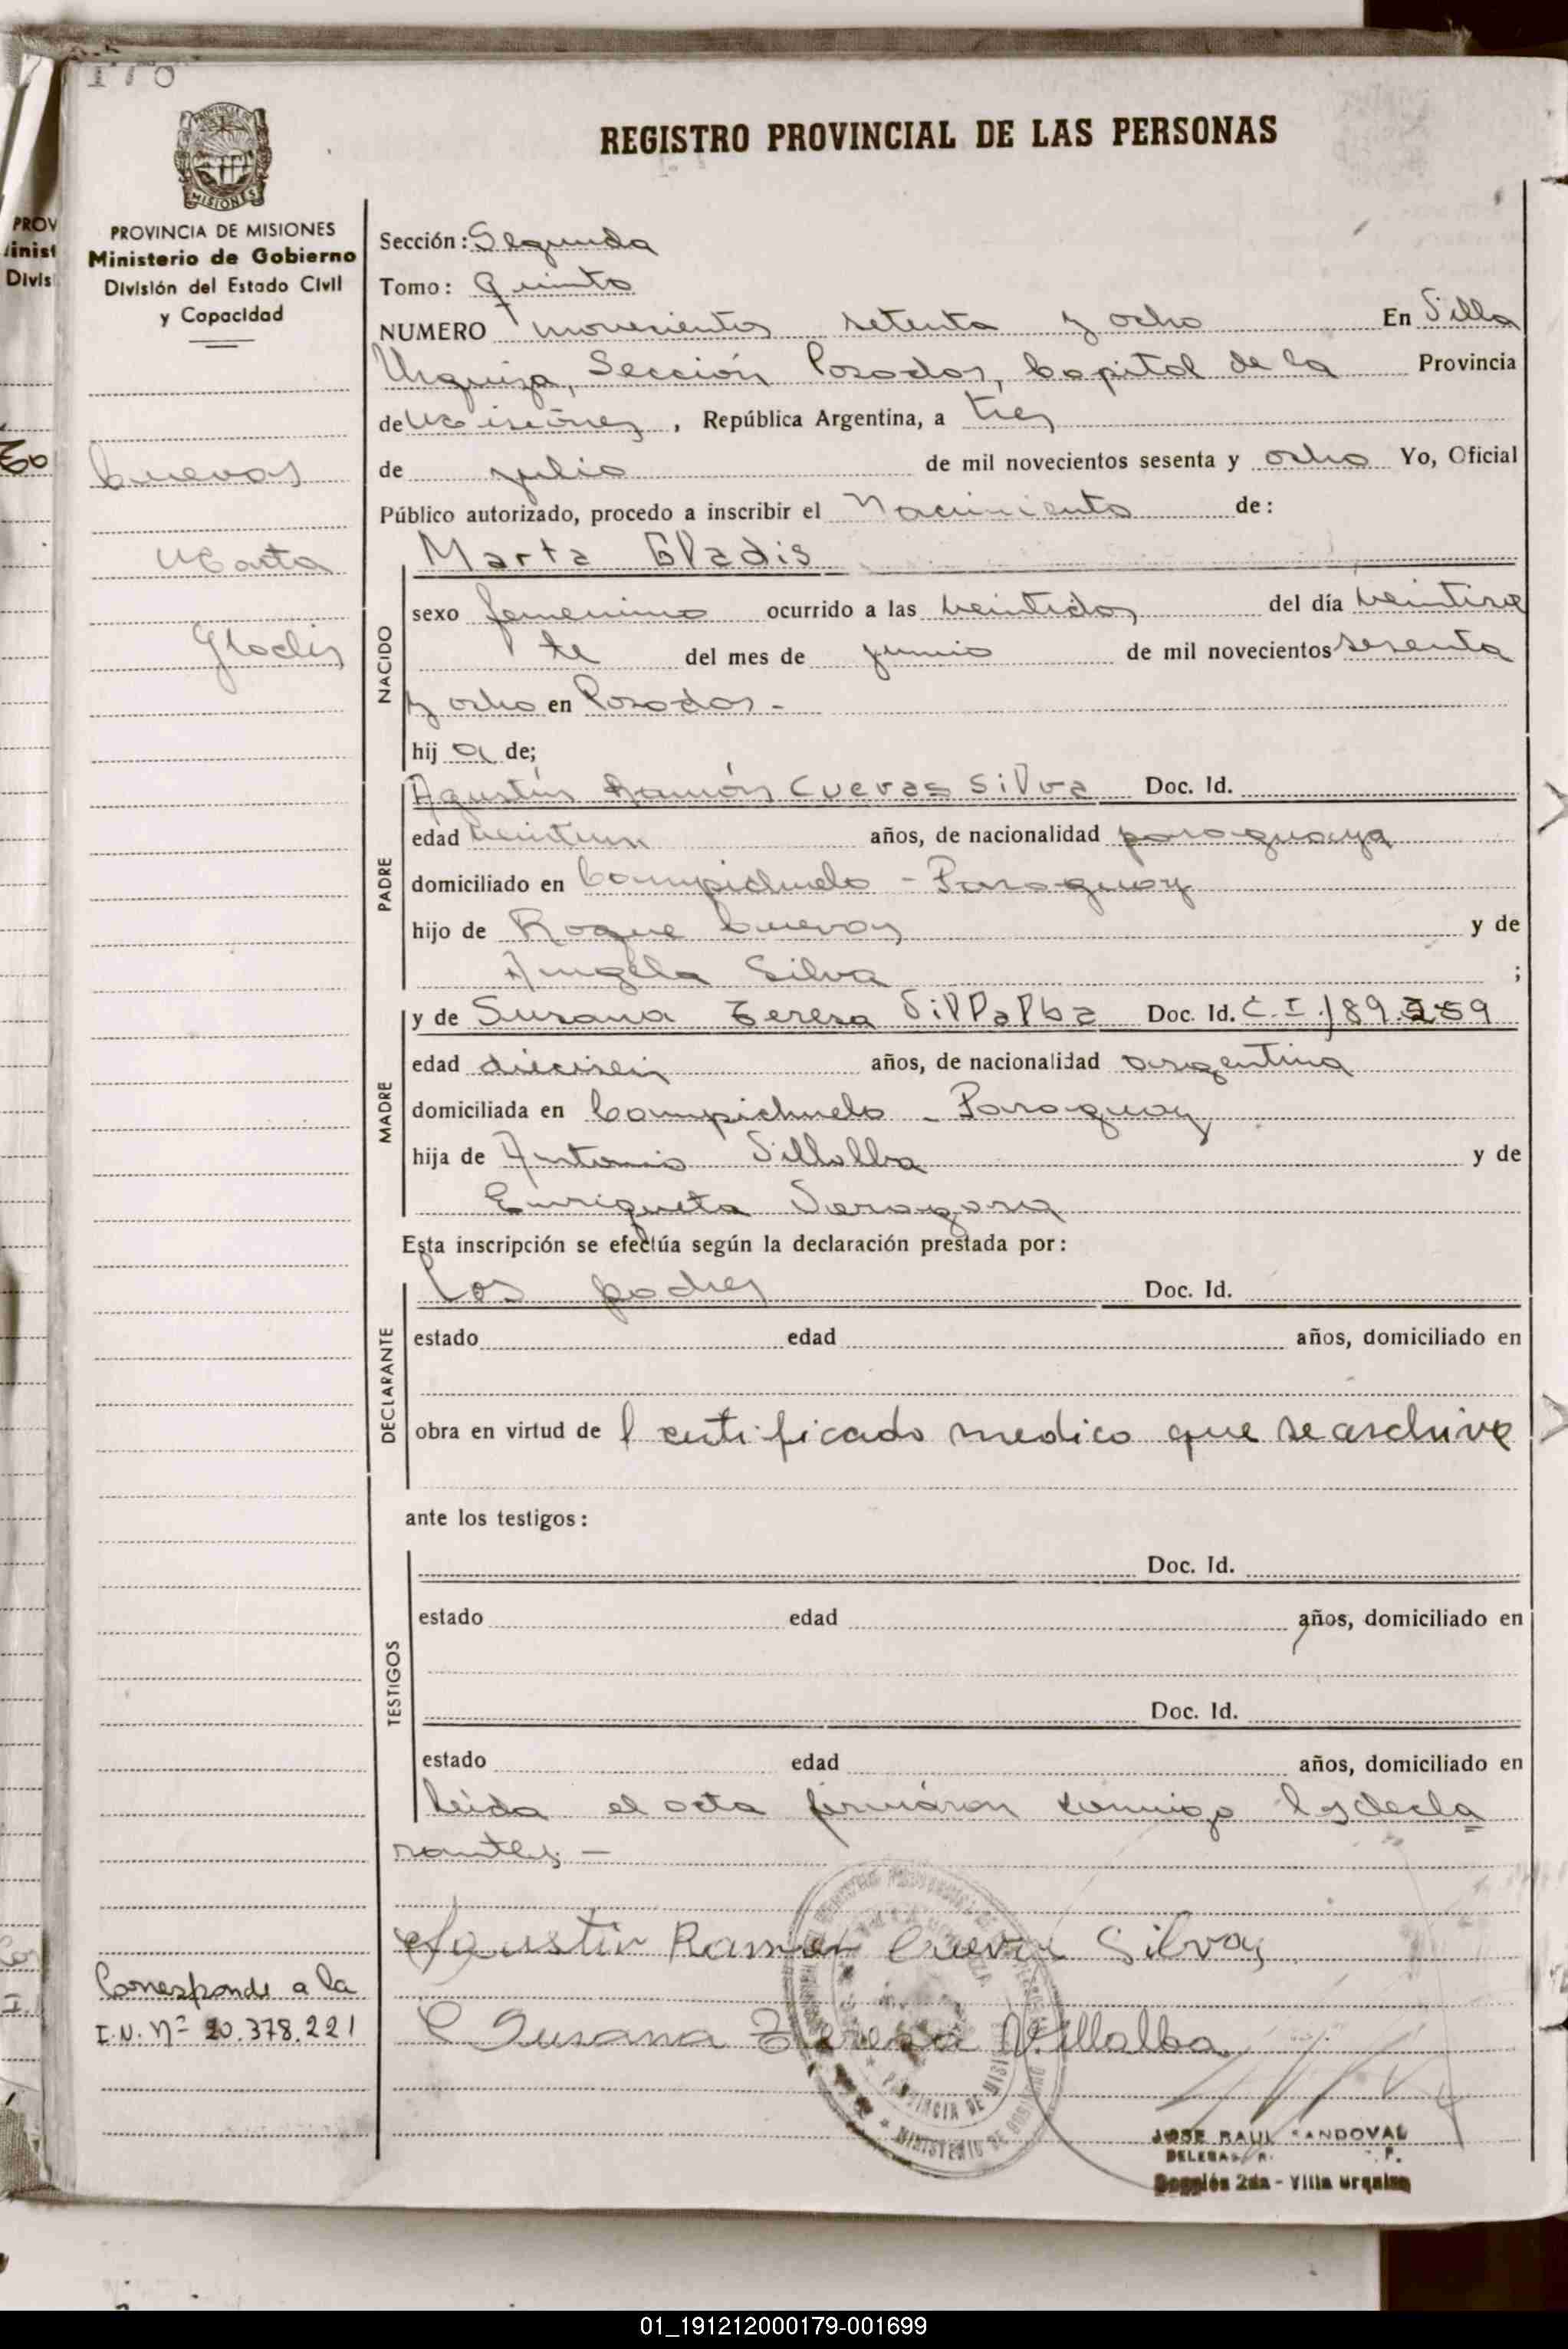 REGISTRO PROVINCIAL DE LAS PERSONAS
MISIONES
PROVINCIA DE MISIONES
Ministerio de Gobierno
División del Estado Civil
y Capacidad
Cuevas
Marta
Gladis
Sección: Segunda
Tomo: Quinto
NUMERO novecientos setenta y ocho En Villa
Urquiza, Sección Posadas, Capital de la Provincia
de Misiones, República Argentina, a tres
de julio de mil novecientos sesenta y ocho Yo, Oficial
Público autorizado, procedo a inscribir el Nacimiento de:
Marta Gladis
NACIDO
sexo femenino ocurrido a las veintidos del día veintisie
te del mes de junio de mil novecientos sesenta
y ocho en Posadas.-
hij a de;
PADRE
Agustín Ramón Cuevas Silva Doc. Id.
edad veintiun años, de nacionalidad paraguaya
domiciliado en Campichuelo - Paraguay
hijo de Roque Cuevas y de
Angela Silva ;
MADRE
y de Susana Teresa Villalba Doc. Id. C.I. 189.259
edad dieciseis años, de nacionalidad argentina
domiciliada en Campichuelo - Paraguay
hija de Antonio Villalba y de
Enriqueta
Esta inscripción se efectúa según la declaración prestada por:
DECLARANTE
Los padres Doc. Id.
estado edad años, domiciliado en
obra en virtud de l certificado medico que se archiva
ante los testigos:
TESTIGOS
Doc. Id.
estado edad años, domiciliado en
Doc. Id.
estado edad años, domiciliado en
Leida el acta firmaron conmigo los decla
rantes.-
Agustin Ramon Cuevas Silva
Susana Teresa Villalba
Corresponde a la
I.N. Nº 20.378.221
PROVINCIA DE MISIONES
MINISTERIO DE GOBIERNO
JOSE RAUL SANDOVAL
Sección 2da - Villa Urquiza
01_191212000179-001699